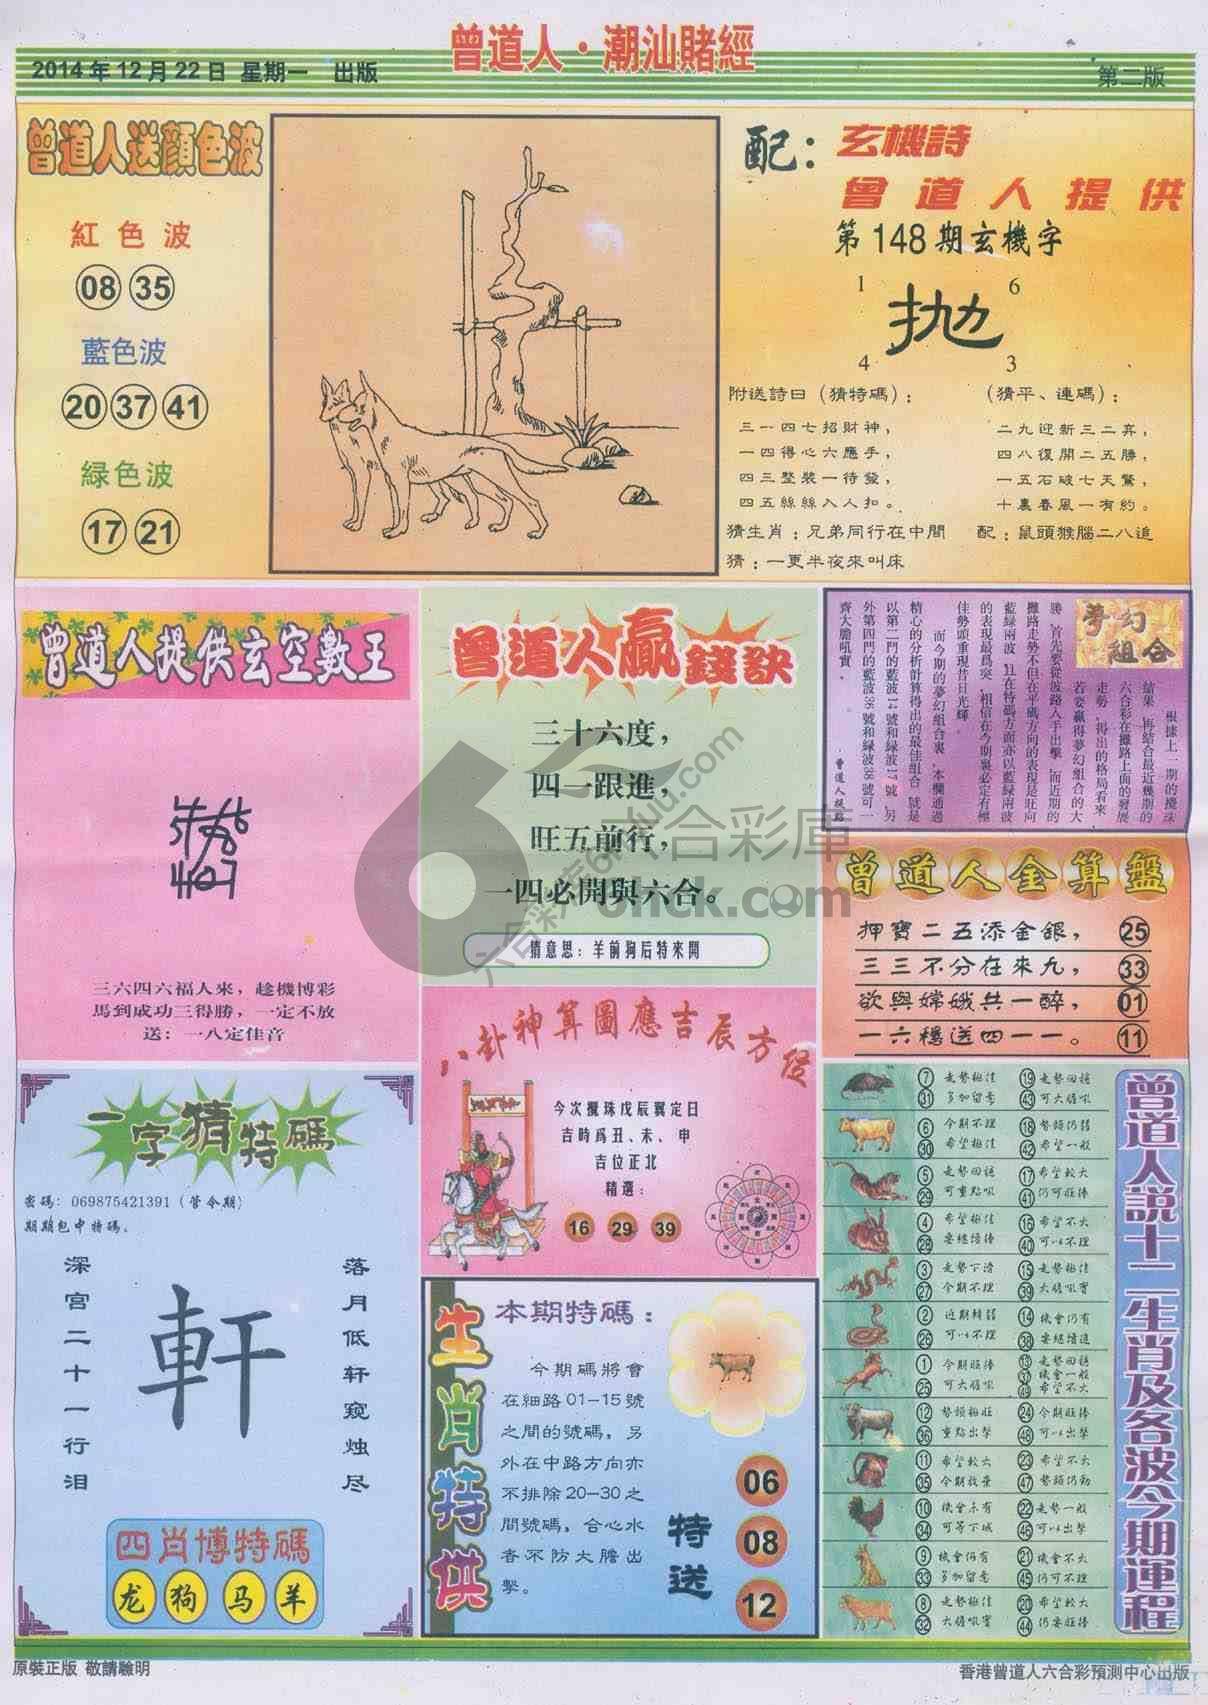 曾道人·潮汕賭經
2014年12月22日 星期一 出版
第二版
曾道人送顔色波
紅色波
08 35
藍色波
20 37 41
緑色波
17 21
配：
玄機詩
曾道人提供
第148期玄機字
1
6
拋
4
3
附送詩曰（猜特碼）：
三一四七招財神，
一四得心六應手，
四三整裝一待發，
四五絲絲入人扣。
（猜平、連碼）：
二九迎新三二弃，
四八復開二五勝，
一五石破七天驚，
十裏春風一有約。
猜生肖：兄弟同行在中間
配：鼠頭猴腦二八追
猜：一更半夜來叫床
曾道人提供玄空數王
三六四六福人來，趁機博彩
馬到成功三得勝，一定不放
送：一八定佳音
曾道人贏錢訣
三十六度，
四一跟進，
旺五前行，
一四必開與六合。
猜意思：羊前狗后特來開
夢幻
組合
根據上一期的攪珠
結果，再結合最近幾期的
六合彩在攤路上面的發展
走勢，得出的格局看來，
若要贏得夢幻組合的大
勝，首先要從波路入手出擊，而近期的
攤路走勢不但在平碼方向的表現是旺向
藍緑兩波，且在特碼方面亦以藍緑兩波
的表現最爲突，相信在今期裏必定有極
佳勢頭重現昔日光輝。
而今期的夢幻組合裏，本欄通過
精心的分析計算得出的最佳組合號是
以第二門的藍波14號和緑波17號，另
外第四門的藍波36號和緑波38號可一
齊大膽吼實。
·曾道人提點
曾道人金算盤
押寶二五添金銀， 25
三三不分在來九， 33
欲與嫦娥共一醉， 01
一六穩送四一一。 11
八卦神算圖應吉辰方位
今次攪珠戊辰翼定日
吉時爲丑、未、申
吉位正北
精選：
16 29 39
一字猜特碼
密碼：069875421391（管令期）
期期包中特碼。
深宫二十一行泪
軒
落月低轩窥烛尽
四肖博特碼
龙 狗 马 羊
生肖特供
本期特碼：
今期碼將會
在細路01-15號
之間的號碼，另
外在中路方向亦
不排除20-30之
間號碼，合心水
者不防大膽出
擊。
特送
06
08
12
曾道人説十二生肖及各波今期運程
7 走勢極佳 19 走勢回穩
31 多加留意 43 可大膽吼
6 今期不理 18 勢頭仍弱
30 希望極佳 42 希望一般
5 走勢回穩 17 希望較大
29 可重點吼 41 仍可旺捧
4 希望極佳 16 希望不大
28 要繼續捧 40 可以不理
3 走勢下滑 15 走勢極佳
27 今期不理 39 大膽吼實
2 近期轉弱 14 機會仍有
26 可以不理 38 要繼續追
1 今期旺捧 13 走勢回穩
37 機會一般
25 可大膽吼 49 希望不大
12 勢頭極旺 24 今期旺捧
36 重點出擊 48 可以出擊
11 希望較大 23 希望不大
35 今期放棄 47 勢頭仍勁
10 機會未有 22 走勢一般
34 可等下城 46 可以出擊
9 機會仍有 21 機會不大
33 多加留意 45 仍可不理
8 走勢極佳 20 希望較大
32 大膽吼實 44 仍要旺捧
六合彩庫
6hck.com
原裝正版 敬請驗明
香港曾道人六合彩預測中心出版